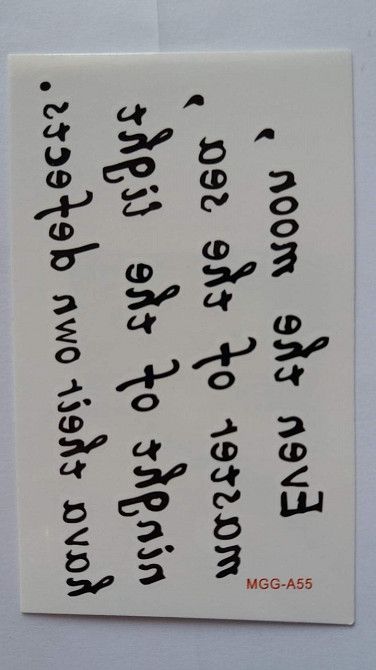 Even the moon,
master of the sea,
ninght of the flight
hava their own defects.
MGG-A55